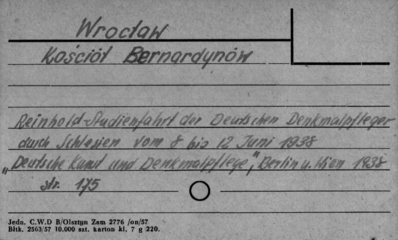 Wrocław
Kościół Bernardynów
Reinhold-Studienfahrt der Deutschen Denkmalpfleger
durch Schlesien vom 8 bis 12 Juni 1938
"Deutsche Kunst und Denkmalpflege", Berlin u. Wien 1938
str. 175
Jedn. C.W.D B/Olsztyn Zam 2776 /on/57
Bltk. 2563/57 10.000 szt. karton kl. 7 g 220.